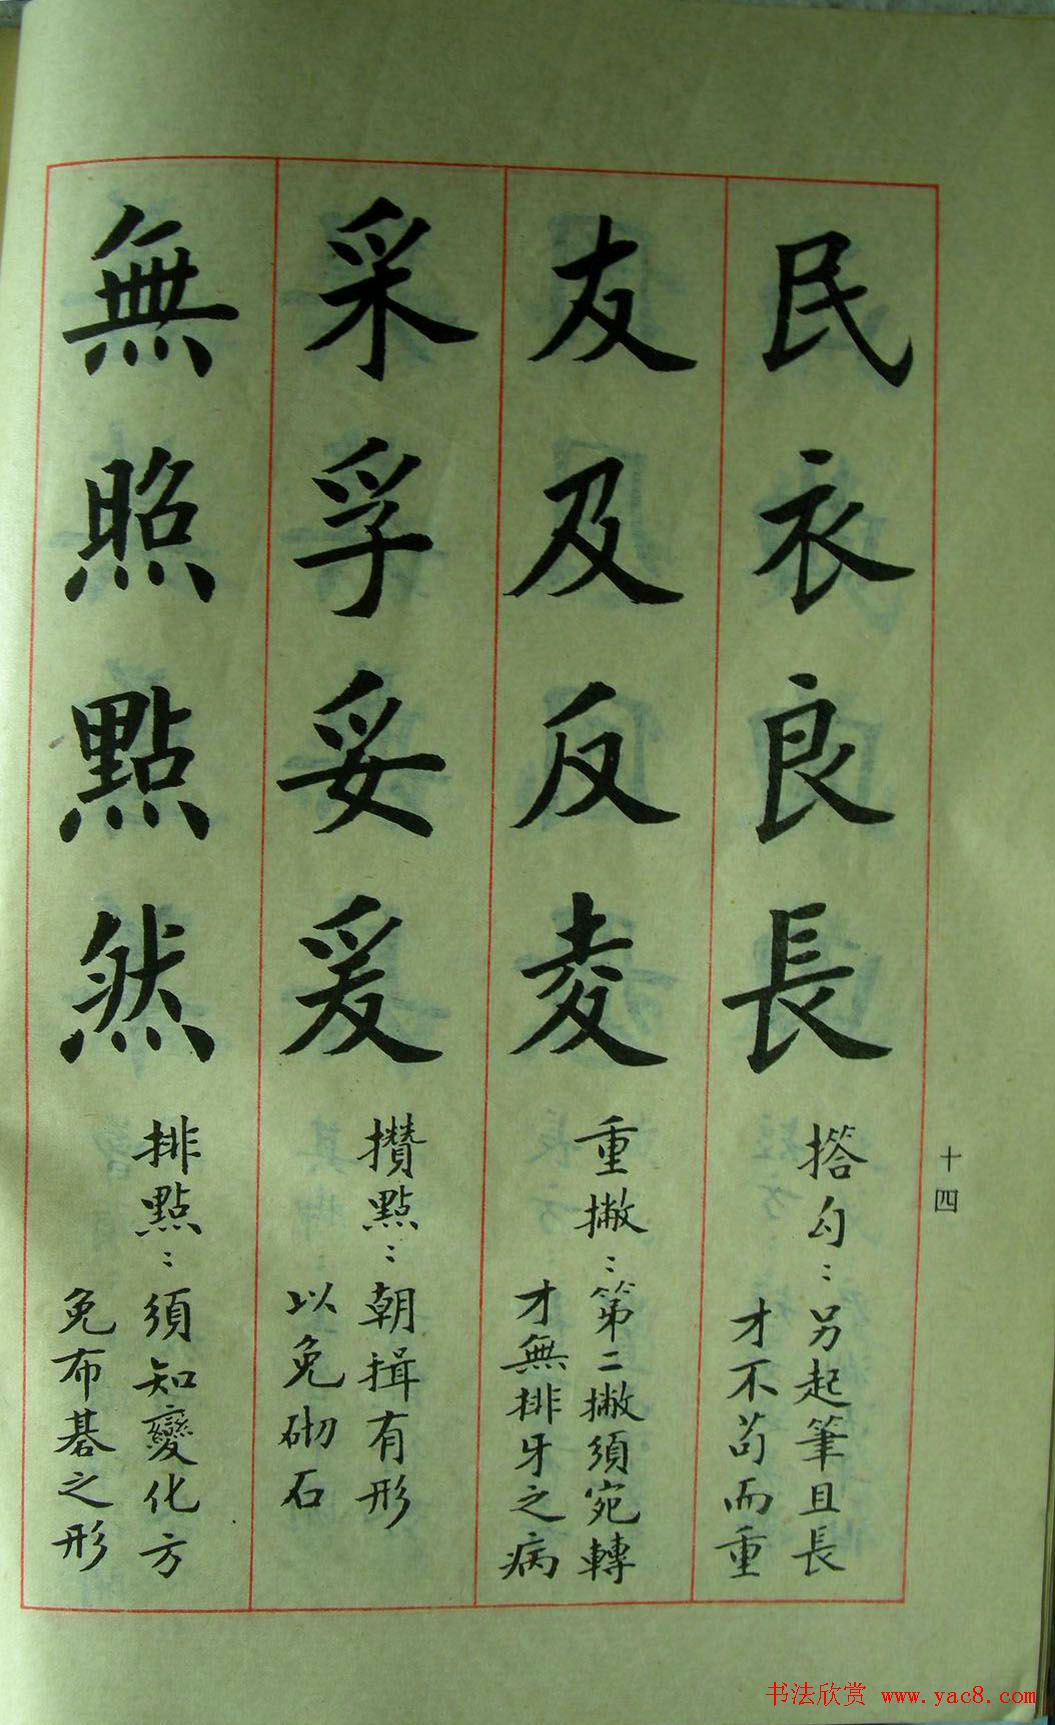 民衣良長
搭勾：另起筆且長
才不苟而重
友及反夌
重撇：第二撇須宛轉
才無排牙之病
采孚妥爰
攢點：朝揖有形
以免砌石
無照點然
排點：須知變化方
免布碁之形
十四
书法欣赏 www.yac8.com